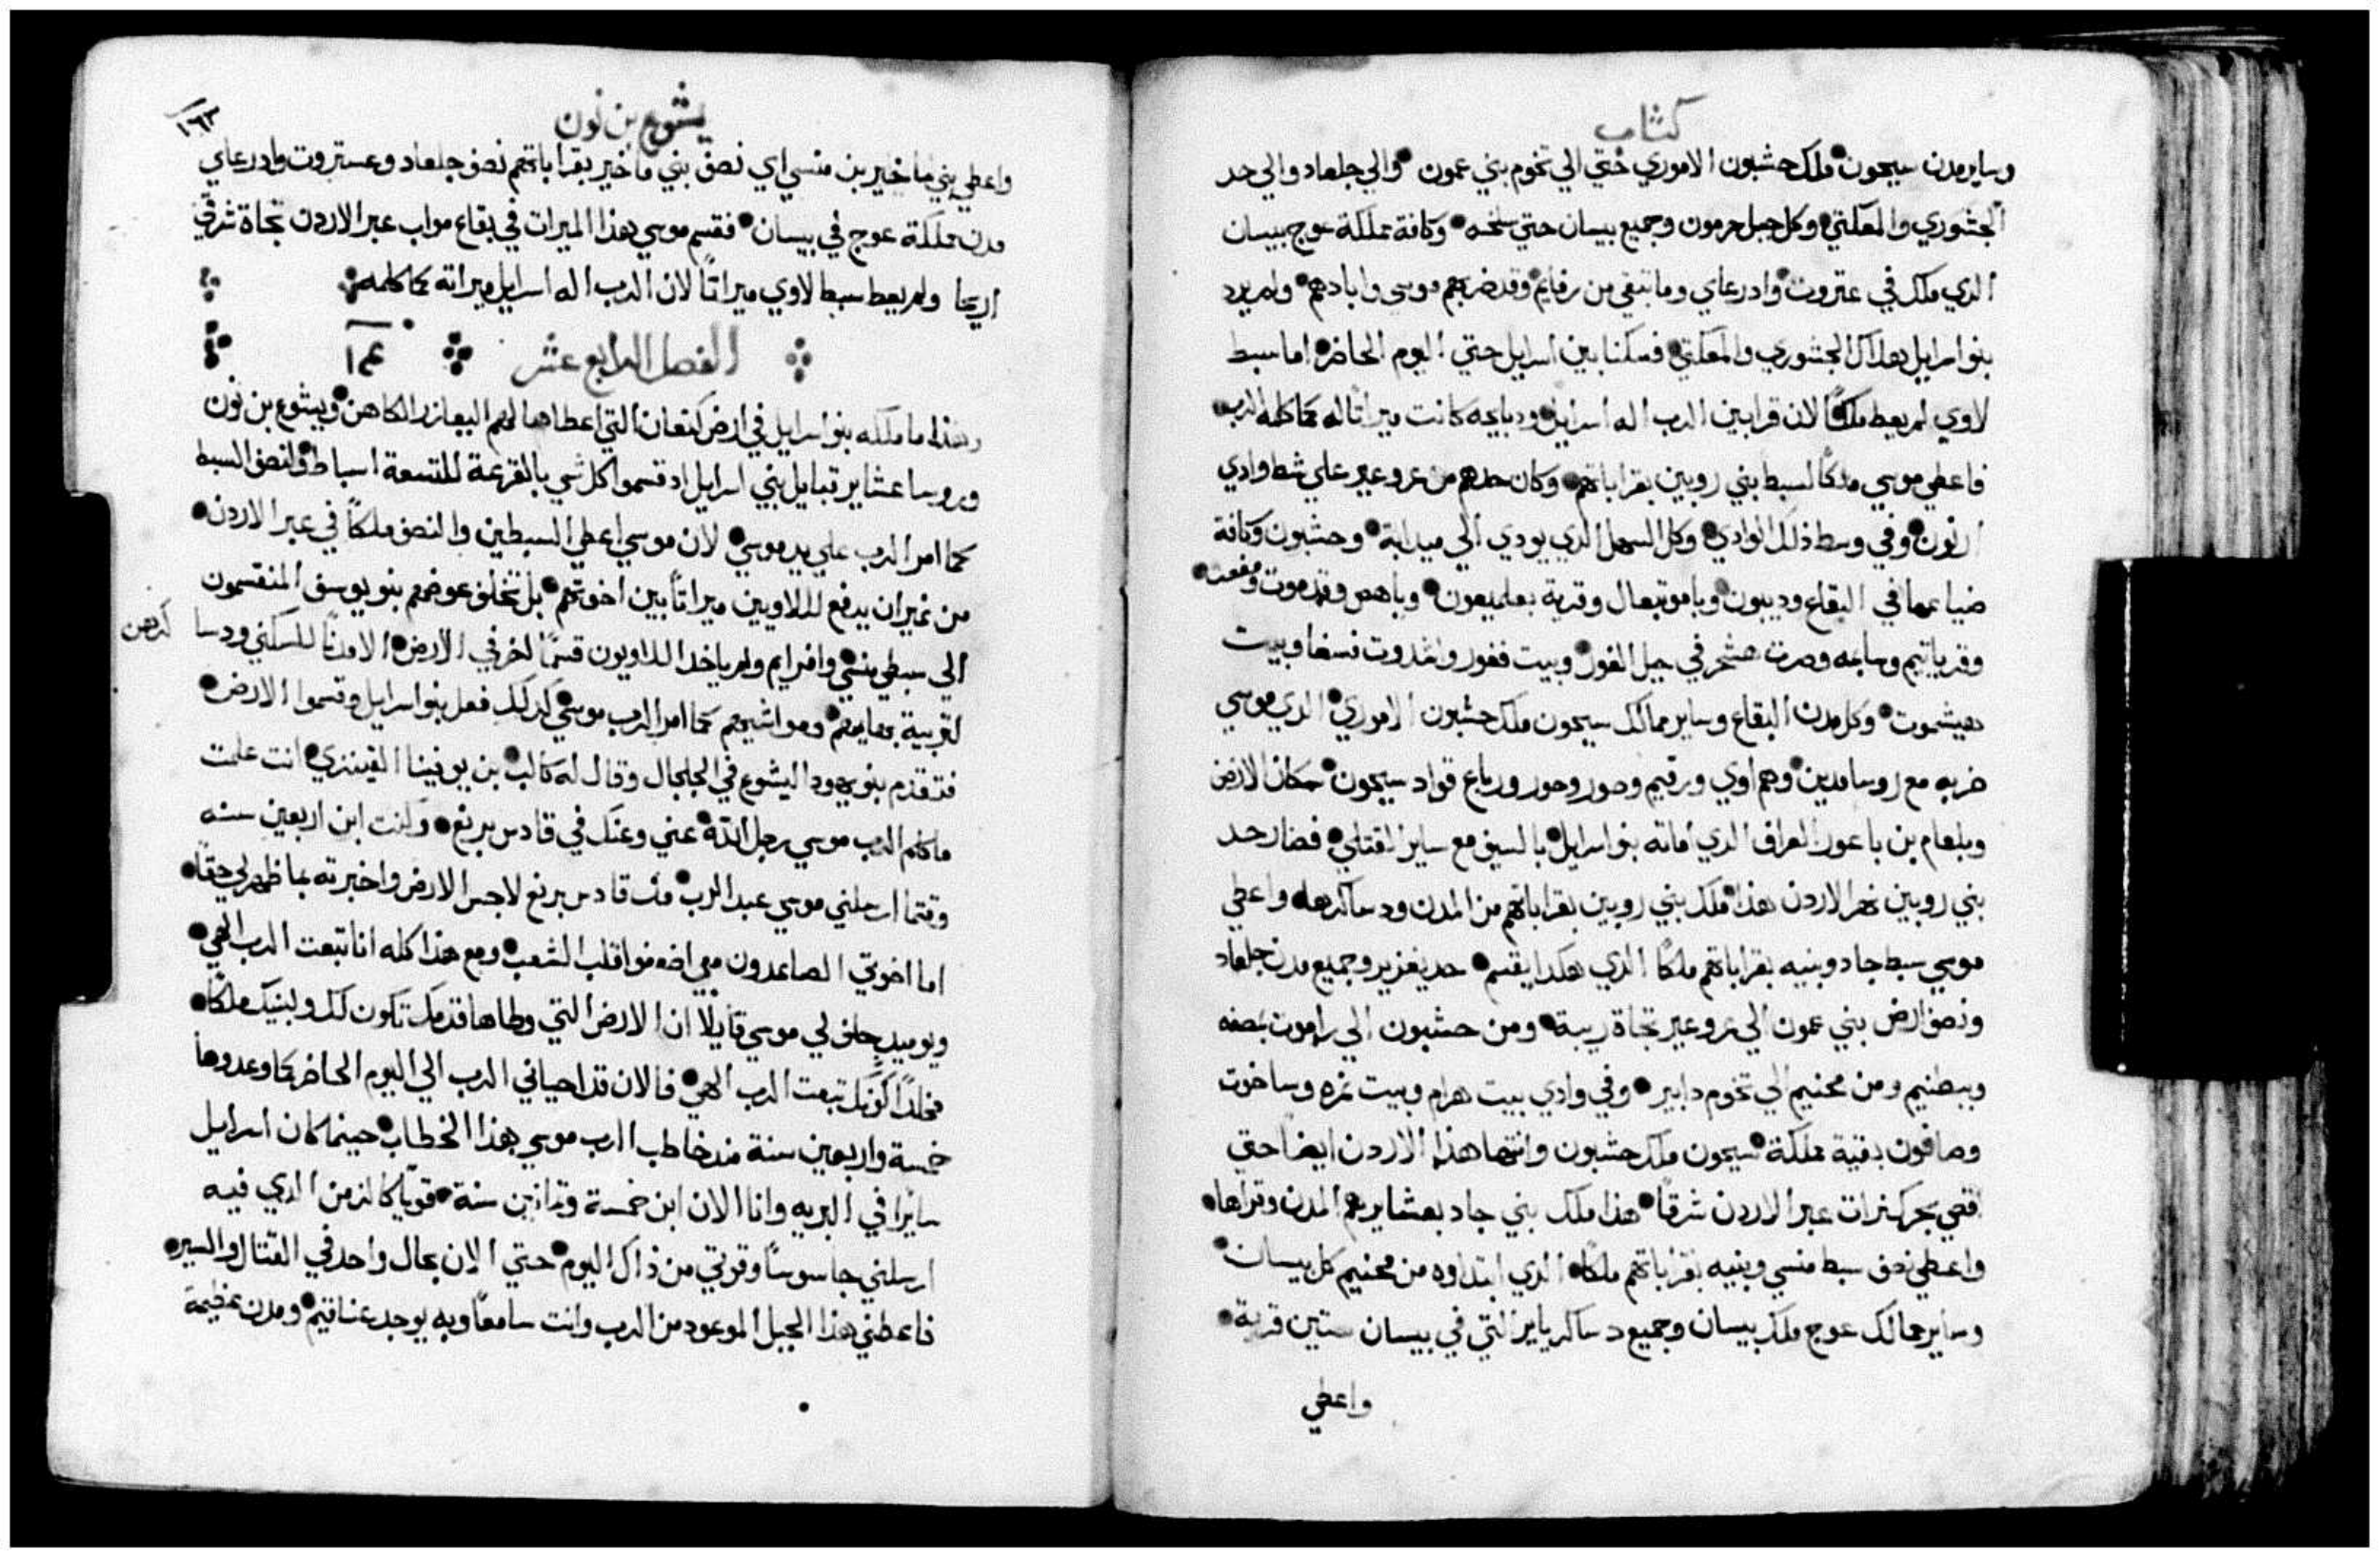 كتاب
وساير مدن سيحون ملك حشبون الاموري حتي الي تخوم بني عمون والي جلعاد والي حد
الجشوري والمعكتي وكل جبل حرمون وجميع بيسان حتي سلخه وكافة مملكة عوج بيسان
الدي ملك في عتروت وادرعاي وما تبقي من رفايم وقد ضربهم موسي وابادهم ولم يرد
بنو اسرايل هلاك الجشوري والمعكتي فسكنا بين اسرايل حتي اليوم الحاضر اما سبط
لاوي لم يعط ملكًا لان قرابين الرب اله اسرايل ودبايحه كانت ميراتًا له كما كلمه الرب
فاعطي موسي ملكًا لسبط بني روبين بقراباتهم وكان حدهم من عروعير علي شط وادي
ارنون وفي وسط ذلك الوادي وكل السهل الدي يودي الي ميدابة وحشبون وكافة
ضياعها في البقاع وديبون وباموتبعال وقرية بعلمعون وياهص وقدموت ومفعت
وقرياتيم وسابمه وصرت هشحر في جبل الغور وبيت فغور واشدوت فسغا وبيت
هيشموت وكل مدن البقاع وساير ممالك سيحون ملك حشبون الاموري الدي موسي
ضربه مع روسا مدين وهم اوي ورقيم وصور وحور ورباع قواد سيحون سكان الارض
وبلعام بن باعور العراف الدي اماته بنو اسرايل بالسيف مع ساير القتلي فصار حد
بني روبين نهر الاردن هذا ملك بني روبين بقراباتهم من المدن ودساكرها واعطي
موسي سبط جاد وبنيه بقراباتهم ملكًا الدي هكدا يقسم حد يعزير وجميع مدن جلعاد
ونصف ارض بني عمون الي عروعير تجاة ريبة ومن حشبون الي راموت بصفه
وببطنيم ومن محنيم الي تخوم دابير وفي وادي بيت هرام وبيت نمره وساخوت
وصافون بقية مملكة سيحون ملك حشبون وانتها هذا الاردن ايضًا حتي
اقصي بحر كنرات عبر الاردن شرقًا هذا ملك بني جاد بعشايرهم المدن وقراها
واعطي نصف سبط منسي وبنيه بقراباتهم ملكًا الدي ابتداوه من محنيم كل بيسان
وساير ممالك عوج ملك بيسان وجميع دساكر ياير التي في بيسان ستين قرية
واعطي
يشوع بن نون
١٦٣
واعطي بني ماخير بن منسي اي نصف بني ماخير بقراباتهم نصف جلعاد وعستروت وادرعاي
مدن مملكة عوج في بيسان فقسم موسي هذا الميرات في بقاع مواب عبر الاردن تجاة شرقي
اريحا ولم يعط سبط لاوي ميراتًا لان الرب اله اسرايل ميراته كما كلمه
الفصل الرابع عشر
وهذا ما ملكه بنو اسرايل في ارض كنعان التي اعطاها لهم اليعازر الكاهن ويشوع بن نون
وروسا عشاير قبايل بني اسرايل اد قسموا كل شي بالقرعة للتسعة اسباط ولنصف السبط
كما امر الرب علي يد موسي لان موسي اعطي السبطين والنصف ملكًا في عبر الاردن
من غير ان يدفع للاويين ميراتًا بين اخوتهم بل تخلف عوضهم بنو يوسف المنقسمون
الي سبطي منسي وافرايم ولم ياخد اللاويون قسمًا اخر في الارض الا مدنًا للسكني ودسا
كرهن
لتربية بهايمهم ومواشيهم كما امر الرب موسي كدلك فعل بنو اسرايل وقسموا الارض
فتقدم بنو يهودا ليشوع في الجلجال وقال له كالب بن يوفينا القينزي انت علمت
ما كلم الرب موسي رجل الله عني وعنك في قادس برنع وكنت ابن اربعين سنه
وقتما ارسلني موسي عبد الرب من قادس برنع لاجس الارض واخبرته بما ظهر لي حقًا
اما اخوتي الصاعدون معي اضعفوا قلب الشعب ومع هذا كله انا تبعت الرب الهي
ويوميدٍ حلف لي موسي قايلًا ان الارض التي وطاها قدمك تكون لك ولبنيك ملكًا
مخلدًا كونك تبعت الرب الهي فالان قد احياني الرب الي اليوم الحاضر كما وعد وها
خمسة واربعين سنة مند خاطب الرب موسي بهذا الخطاب حينما كان اسرايل
سايرا في البريه وانا الان ابن خمسة وتمانين سنة قويًا كالزمن الدي فيه
ارسلني جاسوسًا وقوتي من ذاك اليوم حتي الان بحال واحد في القتال والسير
فاعطني هذا الجبل الموعود من الرب وانت سامعًا وبه يوجد عناقيم ومدن عظيمة